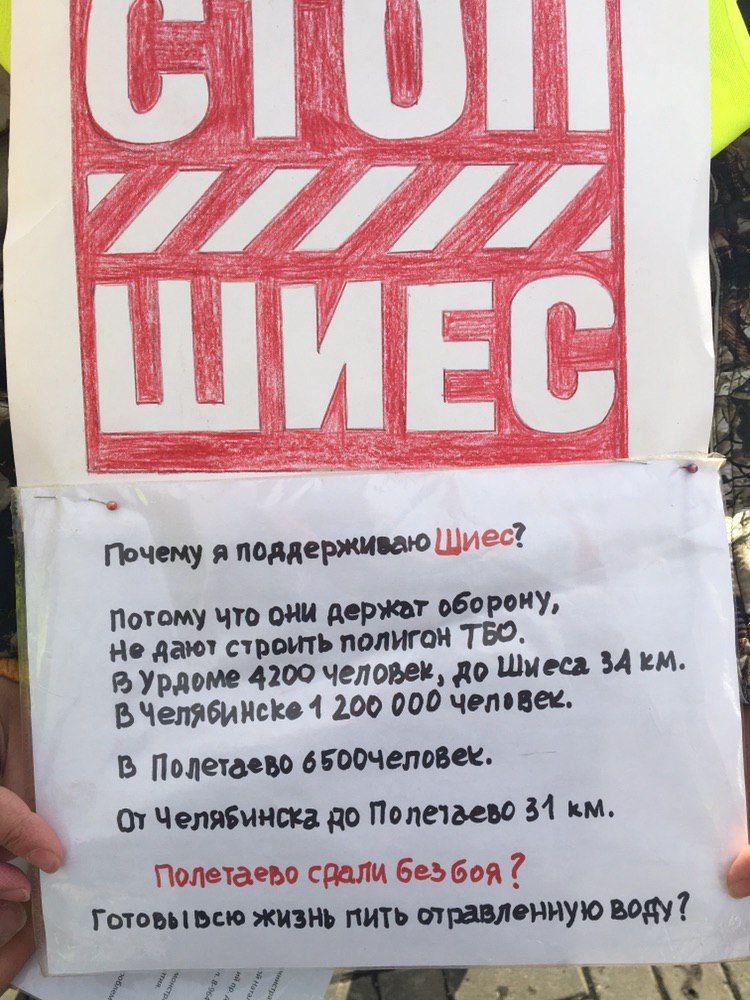 СТОП
ШИЕС
Почему я поддерживаю Шиес?
Потому что они держат оборону,
Не дают строить полигон ТБО.
В Урдоме 4200 человек, до Шиеса 34 км.
В Челябинске 1 200 000 человек.
В Полетаево 6500человек.
От Челябинска до Полетаево 31 км.
Полетаево сдали без боя?
Готовы всю жизнь пить отравленную воду?